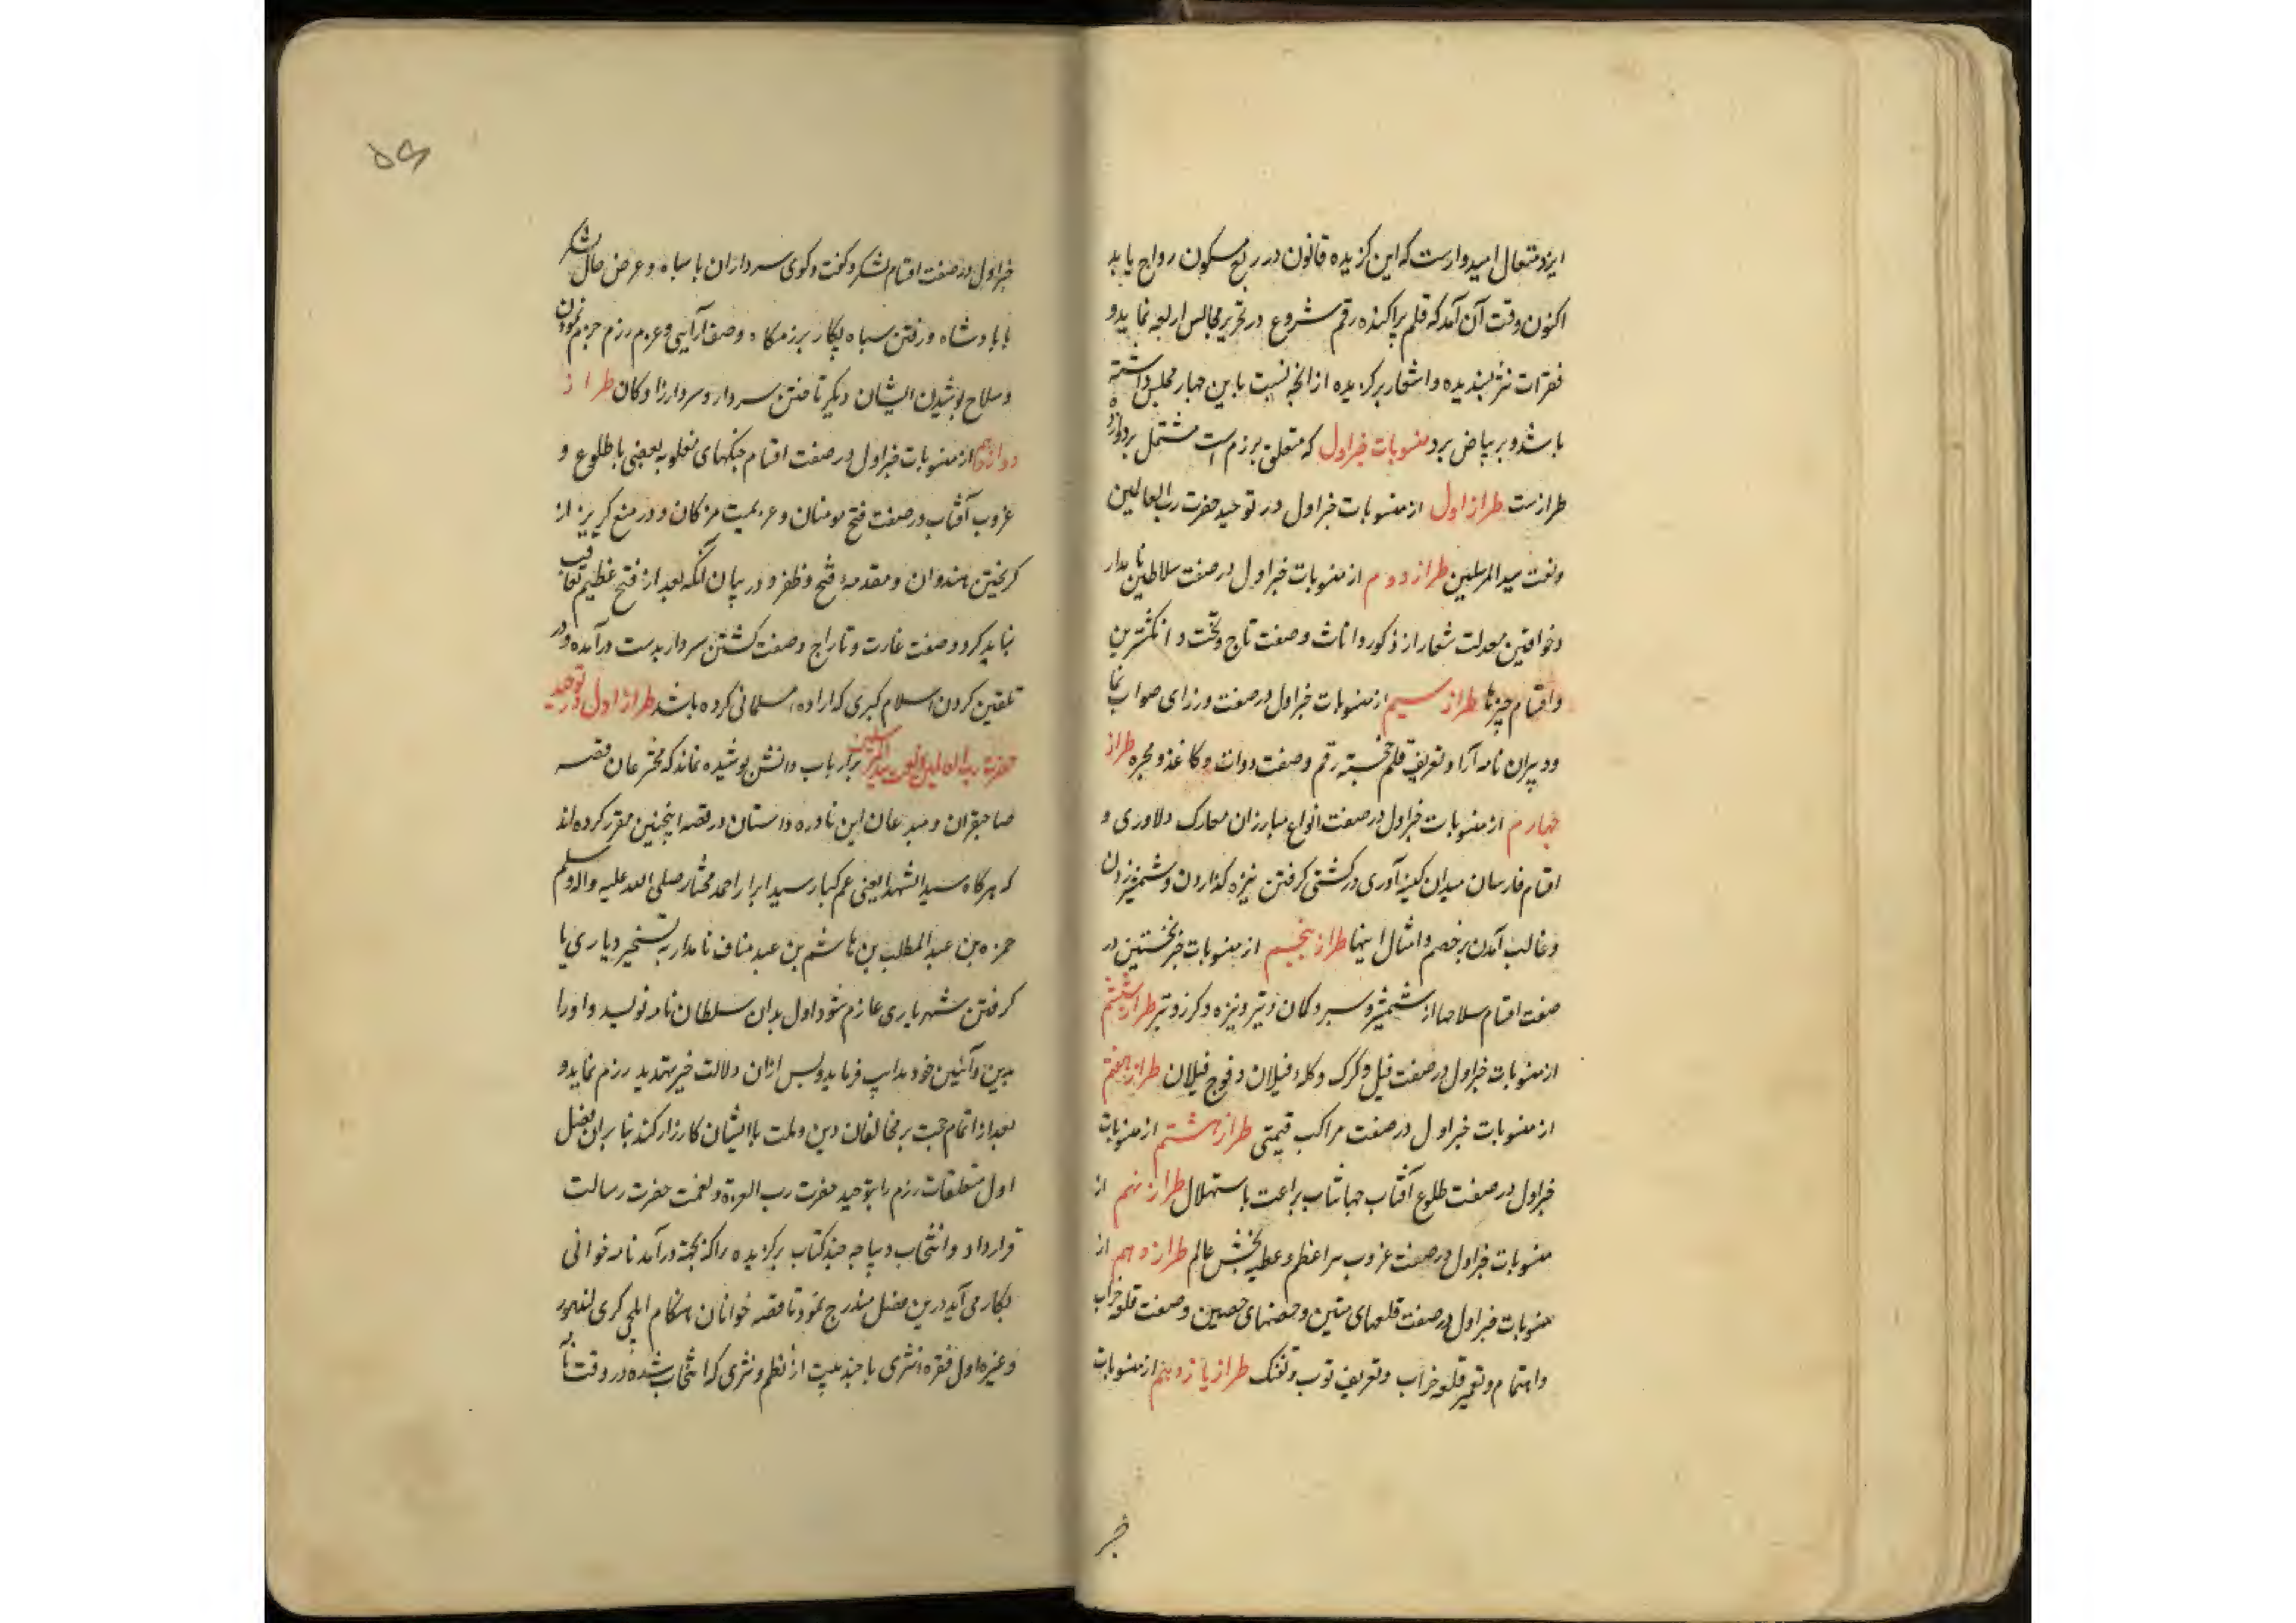 ایزد متعال امیدوارست که این گزیده قانون در ربع مسکون رواج یابد
اکنون وقت آن آمد که قلم پراکنده رقم شروع در تحریر مجالس اربعه نماید و
فقرات نثر پسندیده و اشعار برگزیده از آنچه نسبت باین چهار مجلس داشته
باشد و بر بیاض برد منسوبات خبر اول که متعلق برزم است مشتمل بر دوازده
طرازست طراز اول از منسوبات خبر اول در توحید حضرت رب العالمین
و نعت سید المرسلین طراز دوم از منسوبات خبر اول در صفت سلاطین نامدار
و خواقین معدلت شعار از ذکور و اناث و صفت تاج و تخت و انگشترین
و اقسام چیزها طراز سیم از منسوبات خبر اول در صفت وزرای صواب نما
و دبیران نامه آرا و تعریف قلم خجسته رقم و صفت دوات و کاغذ و محبره طراز
چهارم از منسوبات خبر اول در صفت انواع مبارزان معارک دلاوری و
اقسام فارسان میدان کینه آوری در کشتی گرفتن نیزه گذاردن و شمشیر زدن
و غالب آمدن بر خصم و امثال اینها طراز پنجم از منسوبات خبر نخستین در
صفت اقسام سلاحها از شمشیر و سپر و کمان و تیر و نیزه و گرز و تبر طراز ششم
از منسوبات خبر اول در صفت فیل و کرک و کله فیلان و فوج فیلان طراز هفتم
از منسوبات خبر اول در صفت مراکب قیمتی طراز هشتم از منسوبات
خبر اول در صفت طلوع آفتاب جهانتاب براعت با ستهلال طراز نهم از
منسوبات خبر اول در صفت غروب نیر اعظم و عطیه بخش عالم طراز دهم از
منسوبات خبر اول در صفت قلعهای متین و حصنهای حصین و صفت قلعه خراب
و اهتمام و تعمیر قلعه خراب و تعریف توپ و تفنک طراز یازدهم از منسوبات
خبر
۵۶
خبر اول در صفت اقسام لشکر و گفت و گوی سرداران با سپاه و عرض حال لشکر
با پادشاه و رفتن سپاه پیکار برزمگاه و صف آرایی و عزم رزم جزم نمودن
و سلاح پوشیدن ایشان دیگر تاختن سردار و سردارزادگان طراز
دوازدهم از منسوبات خبر اول در صفت اقسام جنگهای مغلوبه بعضی با طلوع و
غروب آفتاب در صفت فتح مومنان و هزیمت و در منع گریز از
گریختن هندوان و مقدمه فتح و ظفر و در بیان آنکه بعد از فتح عظیم تعاقب
نباید کرد و صفت غارت و تاراج و صفت کشتن سردار بدست درآمده و در
تلقین کردن اسلام گبری که اراده مسلمانی کرده باشد طراز اول در توحید
حضرت رب العالمین و نعت سید المرسلین بر ارباب دانش پوشیده نماند که مخترعان قصه
صاحبقران و مبدعان این نادره داستان در قصه اینچنین مقرر کرده اند
که هرگاه سید الشهدا یعنی عم کبار سید ابرار احمد مختار صلی الله علیه و اله وسلم
حمزه بن عبد المطلب بن هاشم بن عبد مناف نامدار به تسخیر دیاری یا
گرفتن شهریاری عازم شود اول بدان سلطان نامه نویسد و او را
بدین و آئین خود فرماید و پس ازان دلالت خیر تهدید رزم نماید و
بعد از اتمام حجت بر مخالفان دین و ملت با ایشان کارزار کند بنا بران فصل
اول متعلقات رزم را بتوحید حضرت رب العزة و نعت حضرت رسالت
قرار داد و انتخاب دیباجه چند کتاب برگزیده را که بجهة درآمد نامه خوانی
بکار می آید درین فصل مندرج نمود تا قصه خوانان هنگام ایلچی گری
و غیره اول فقره نثری با چند بیت از نظم و نثری که انتخاب شده در وقت نامه